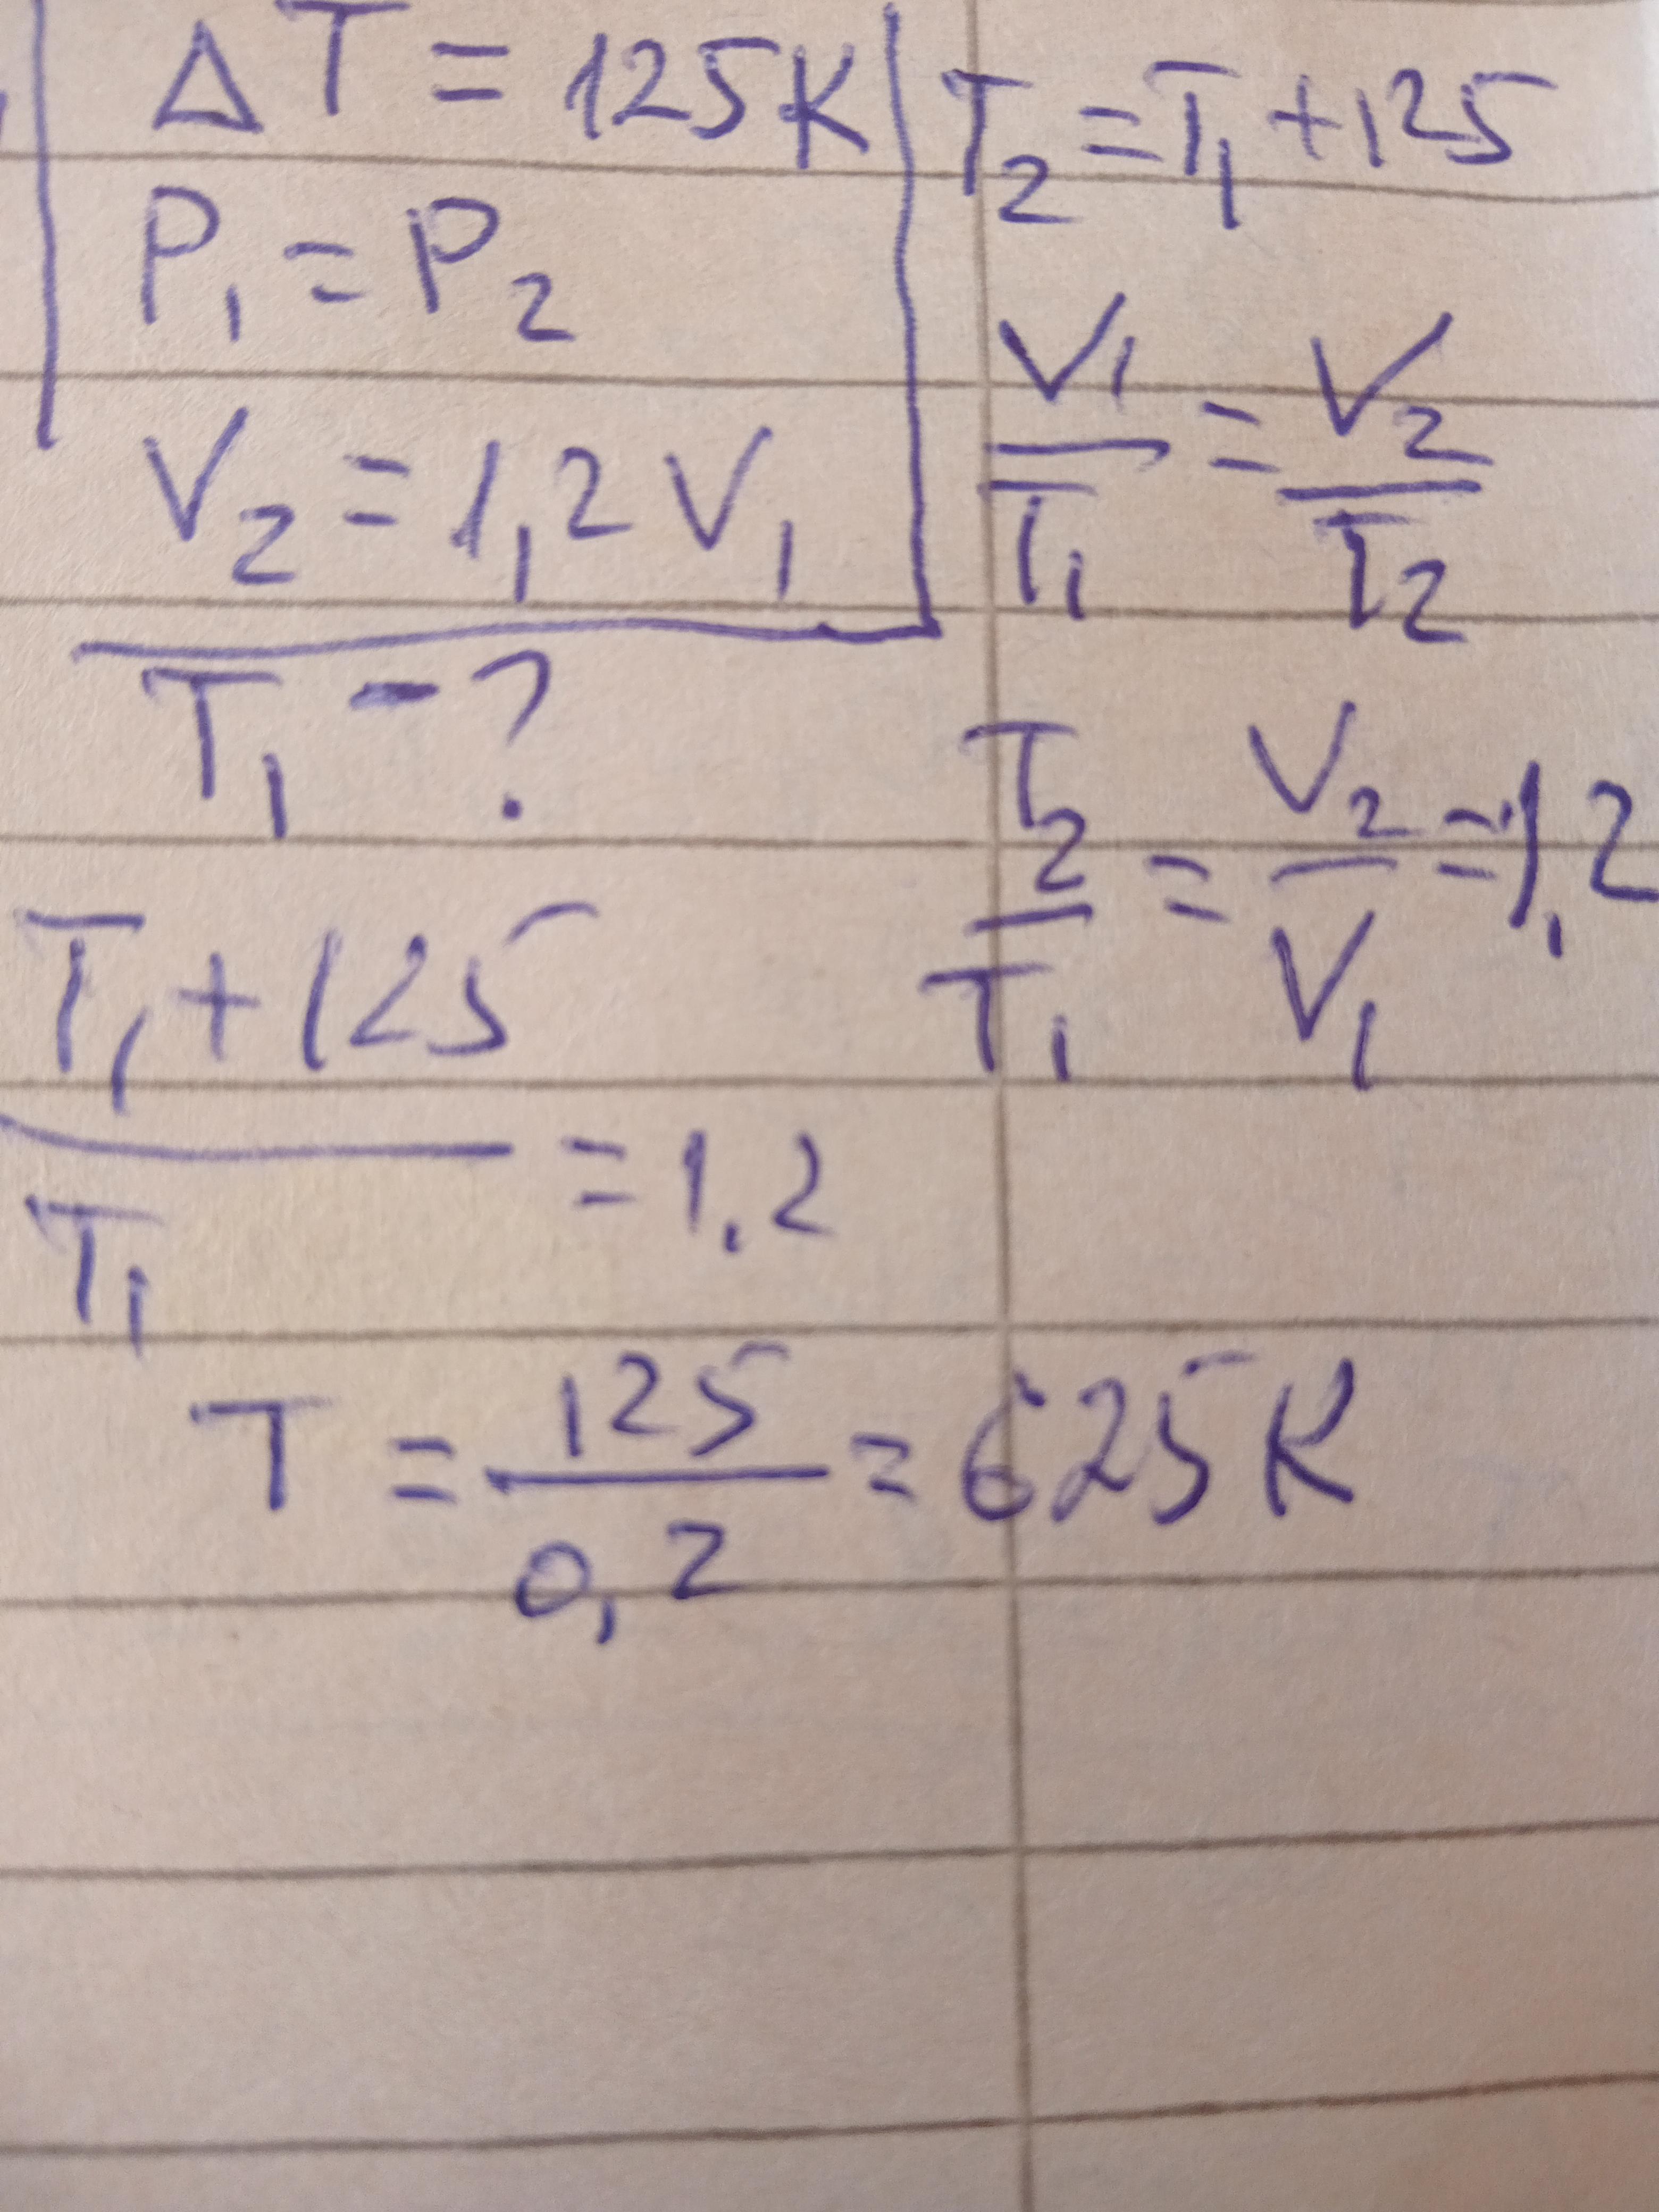 ΔT = 125K
P₁ = P₂
V₂ = 1,2 V₁
T₁ - ?
T₂ = T₁ + 125
V₁/T₁ = V₂/T₂
T₂/T₁ = V₂/V₁ = 1,2
T₁ + 125 / T₁ = 1,2
T = 125/0,2 = 625K